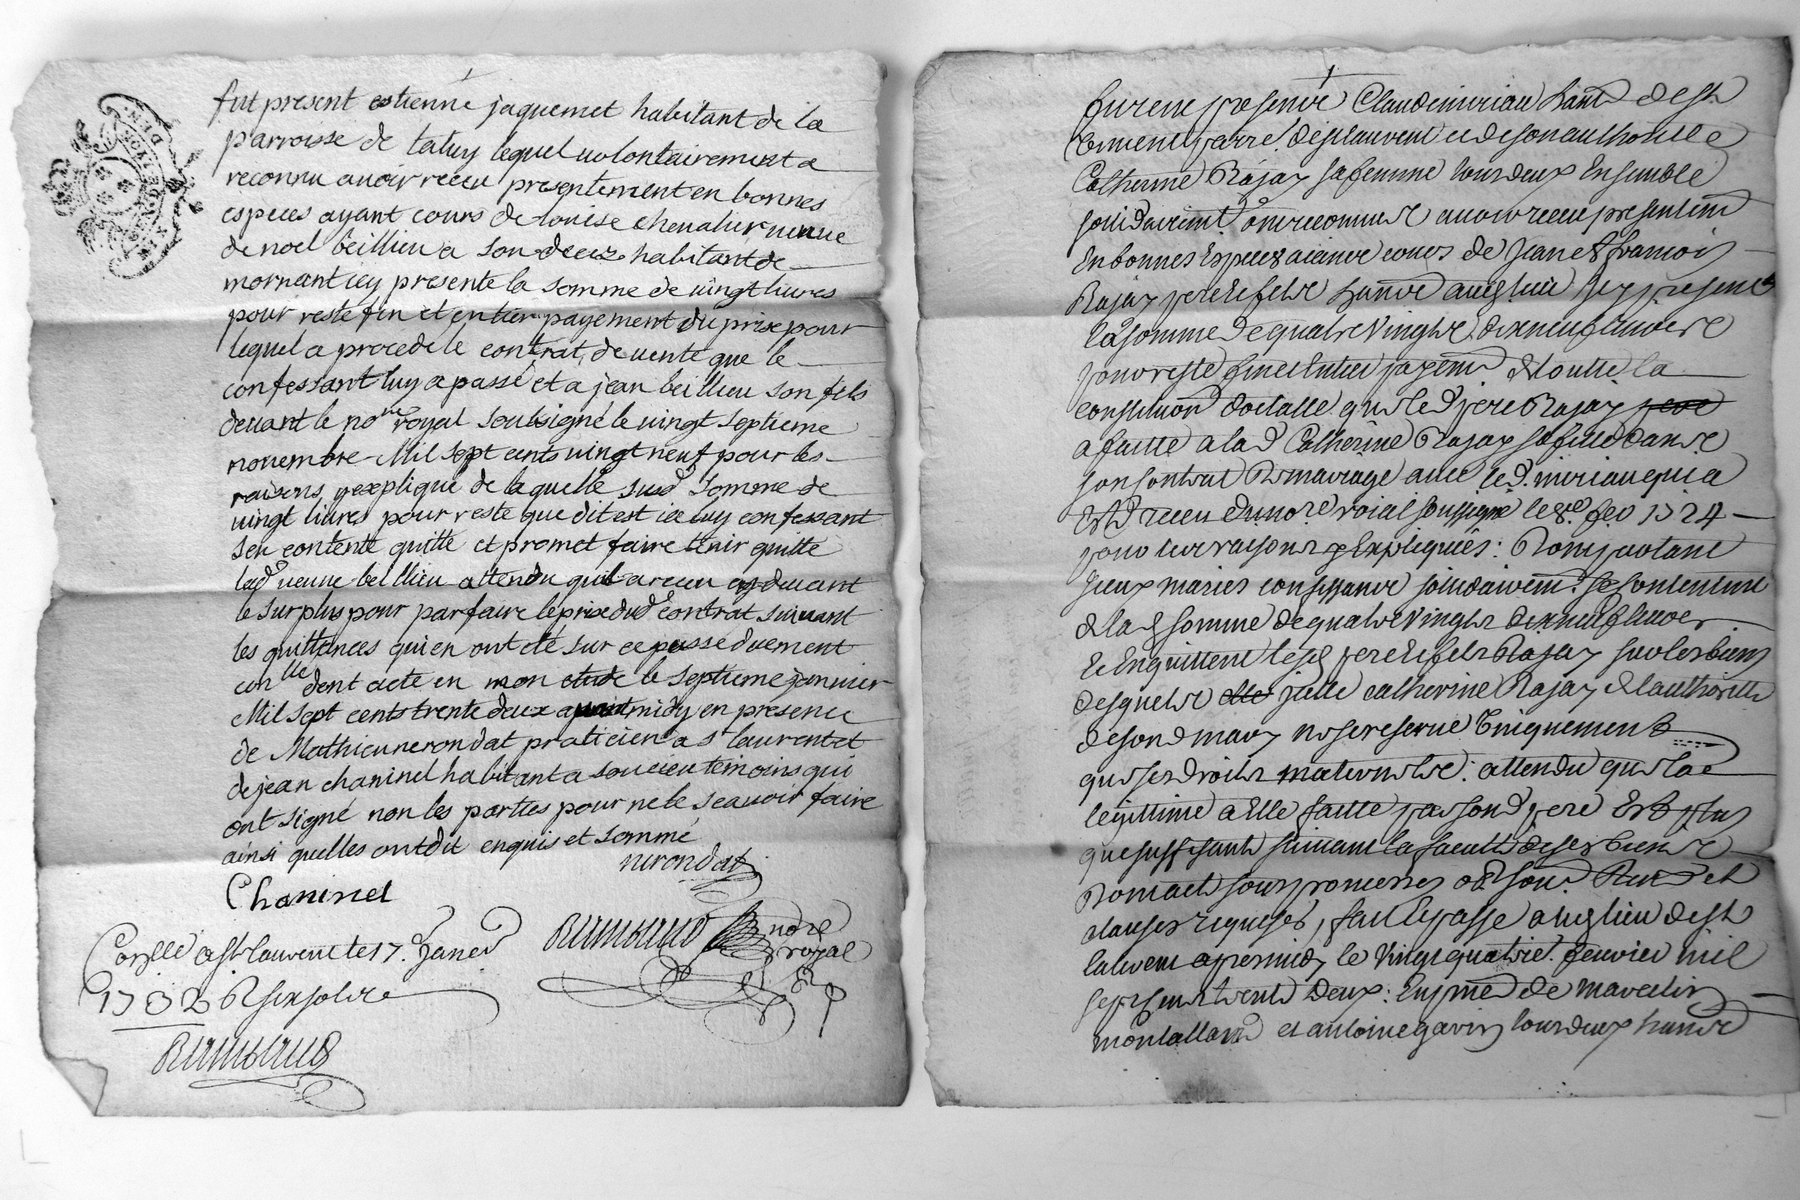 fut present estienne jaquemet habitant de la
parroisse de taluy lequel volontairement a
reconnu avoir receu presentement en bonnes
especes ayant cours de louise chevalier veuve
de noel beillieu a son deces habitant de
mornant icy presente la somme de vingt livres
pour reste fin et entier payement du prise pour
lequel a procedé le contrat de vente que le
confessant luy a passé et a jean beillieu son fils
devant le no.re royal soubsigné le vingt septieme
novembre Mil sept cents vingt neuf pour les
raisons y expliqué de laquelle susd. somme de
vingt livres pour reste que dit est ice luy confessant
sen contente quitte et promet faire tenir quitte
lad. veuve beillieu attendu quil a receu cy devant
le surplus pour parfaire le prise dud. contrat suivant
les quittances qui en ont été sur ce passé duement
con.lle dont acte en mon etude le septieme janvier
Mil sept cents trente deux apres midy en presence
de Mathieu nerondat praticien a st laurent et
de jean chaninel habitant a soucieu temoins qui
ont signé non les parties pour ne le sçavoir faire
ainsi quelles ont dit enquis et sommé
nirondat
Chaninel
no.re
royal
a st laurent le 17.e Janer
1732
furent presents Claude st.
Catherine Rajay sa femme tous deux Ensemble
solidairement ont reconneu avoir receu presentem.
En bonnes Especes aiance cours de Jean & francois
Rajay pere et fils
la somme de quatre vingts dix neuf livres
pour reste fin et Entier payem. de toutte la
constitution dotalle que led. pere Rajay
a faitte a lad. Catherine Rajay sa fille dans
son Contrat de mariage avec led. qui a
receu du no.re roial soussigné le 8.e 1724
pour les raisons y Expliquées:
jeux mariés confessants solidairem. se contentent
de lad. somme de quatre vingts dix neuf livres
Et En quittent lesd. pere et fils Rajay sur les biens
desquels icelle catherine Rajay de lauthorité
de sond. mary ne se reserve Uniquement
que ses droits maternels: attendu que la
legittime a Elle faitte par sond. pere Est plus
que suffisante suivant la faculté de ses biens
Dont acte sous promesses
clauses requises, fait & passé aud. lieu de st
laurent apres midy le vingt quatrie. fevrier mil
sept cents trente deux: En pnce de
et antoine gavin tous deux